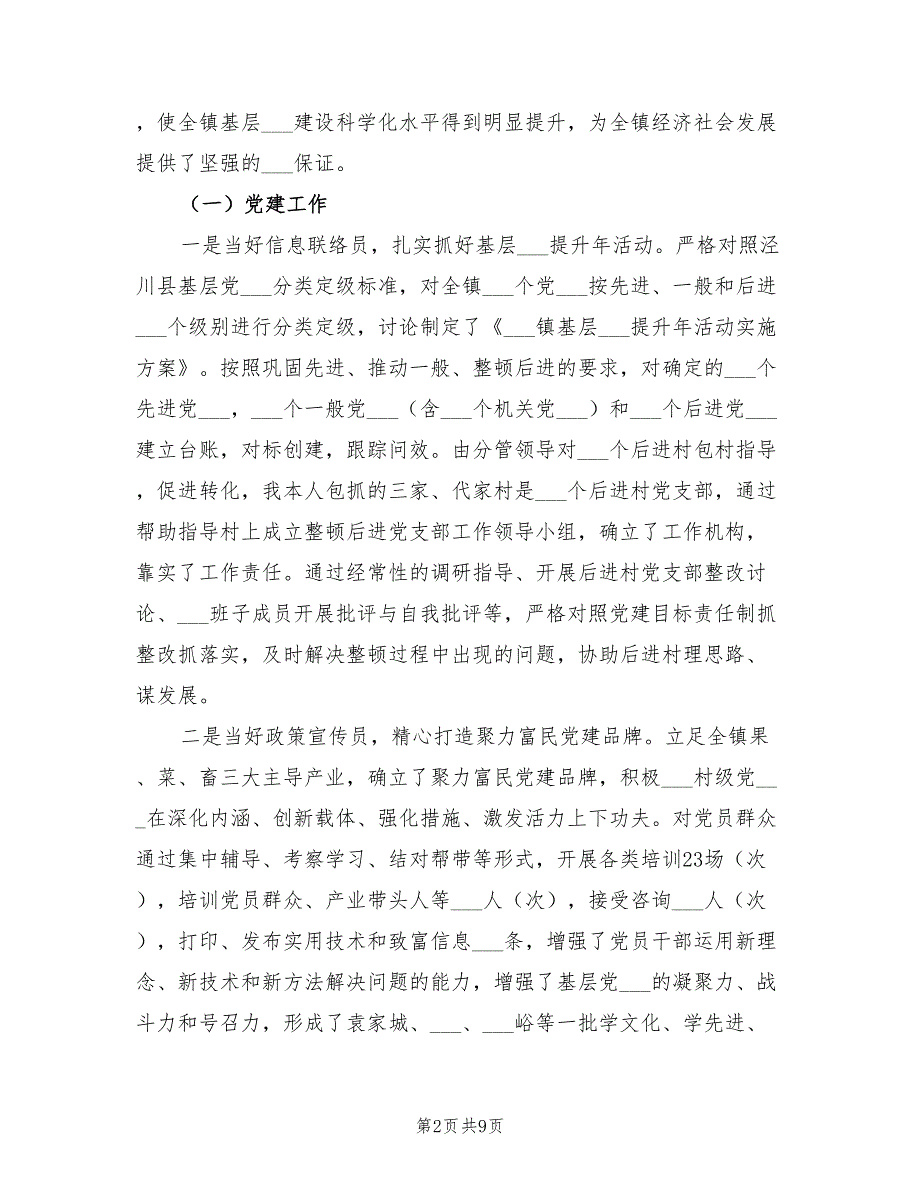 ，使全镇基层___建设科学化水平得到明显提升，为全镇经济社会发展
提供了坚强的___保证。
（一）党建工作
一是当好信息联络员，扎实抓好基层___提升年活动。严格对照泾
川县基层党___分类定级标准，对全镇___个党___按先进、一般和后进
___个级别进行分类定级，讨论制定了《___镇基层___提升年活动实施
方案》。按照巩固先进、推动一般、整顿后进的要求，对确定的___个
先进党___，___个一般党___（含___个机关党___）和___个后进党___
建立台账，对标创建，跟踪问效。由分管领导对___个后进村包村指导
，促进转化，我本人包抓的三家、代家村是___个后进村党支部，通过
帮助指导村上成立整顿后进党支部工作领导小组，确立了工作机构，
靠实了工作责任。通过经常性的调研指导、开展后进村党支部整改讨
论、___班子成员开展批评与自我批评等，严格对照党建目标责任制抓
整改抓落实，及时解决整顿过程中出现的问题，协助后进村理思路、
谋发展。
二是当好政策宣传员，精心打造聚力富民党建品牌。立足全镇果
、菜、畜三大主导产业，确立了聚力富民党建品牌，积极___村级党__
_在深化内涵、创新载体、强化措施、激发活力上下功夫。对党员群众
通过集中辅导、考察学习、结对帮带等形式，开展各类培训23场（次
），培训党员群众、产业带头人等___人（次），接受咨询___人（次
），打印、发布实用技术和致富信息___条，增强了党员干部运用新理
念、新技术和新方法解决问题的能力，增强了基层党___的凝聚力、战
斗力和号召力，形成了袁家城、___、___峪等一批学文化、学先进、
第2页 共9页